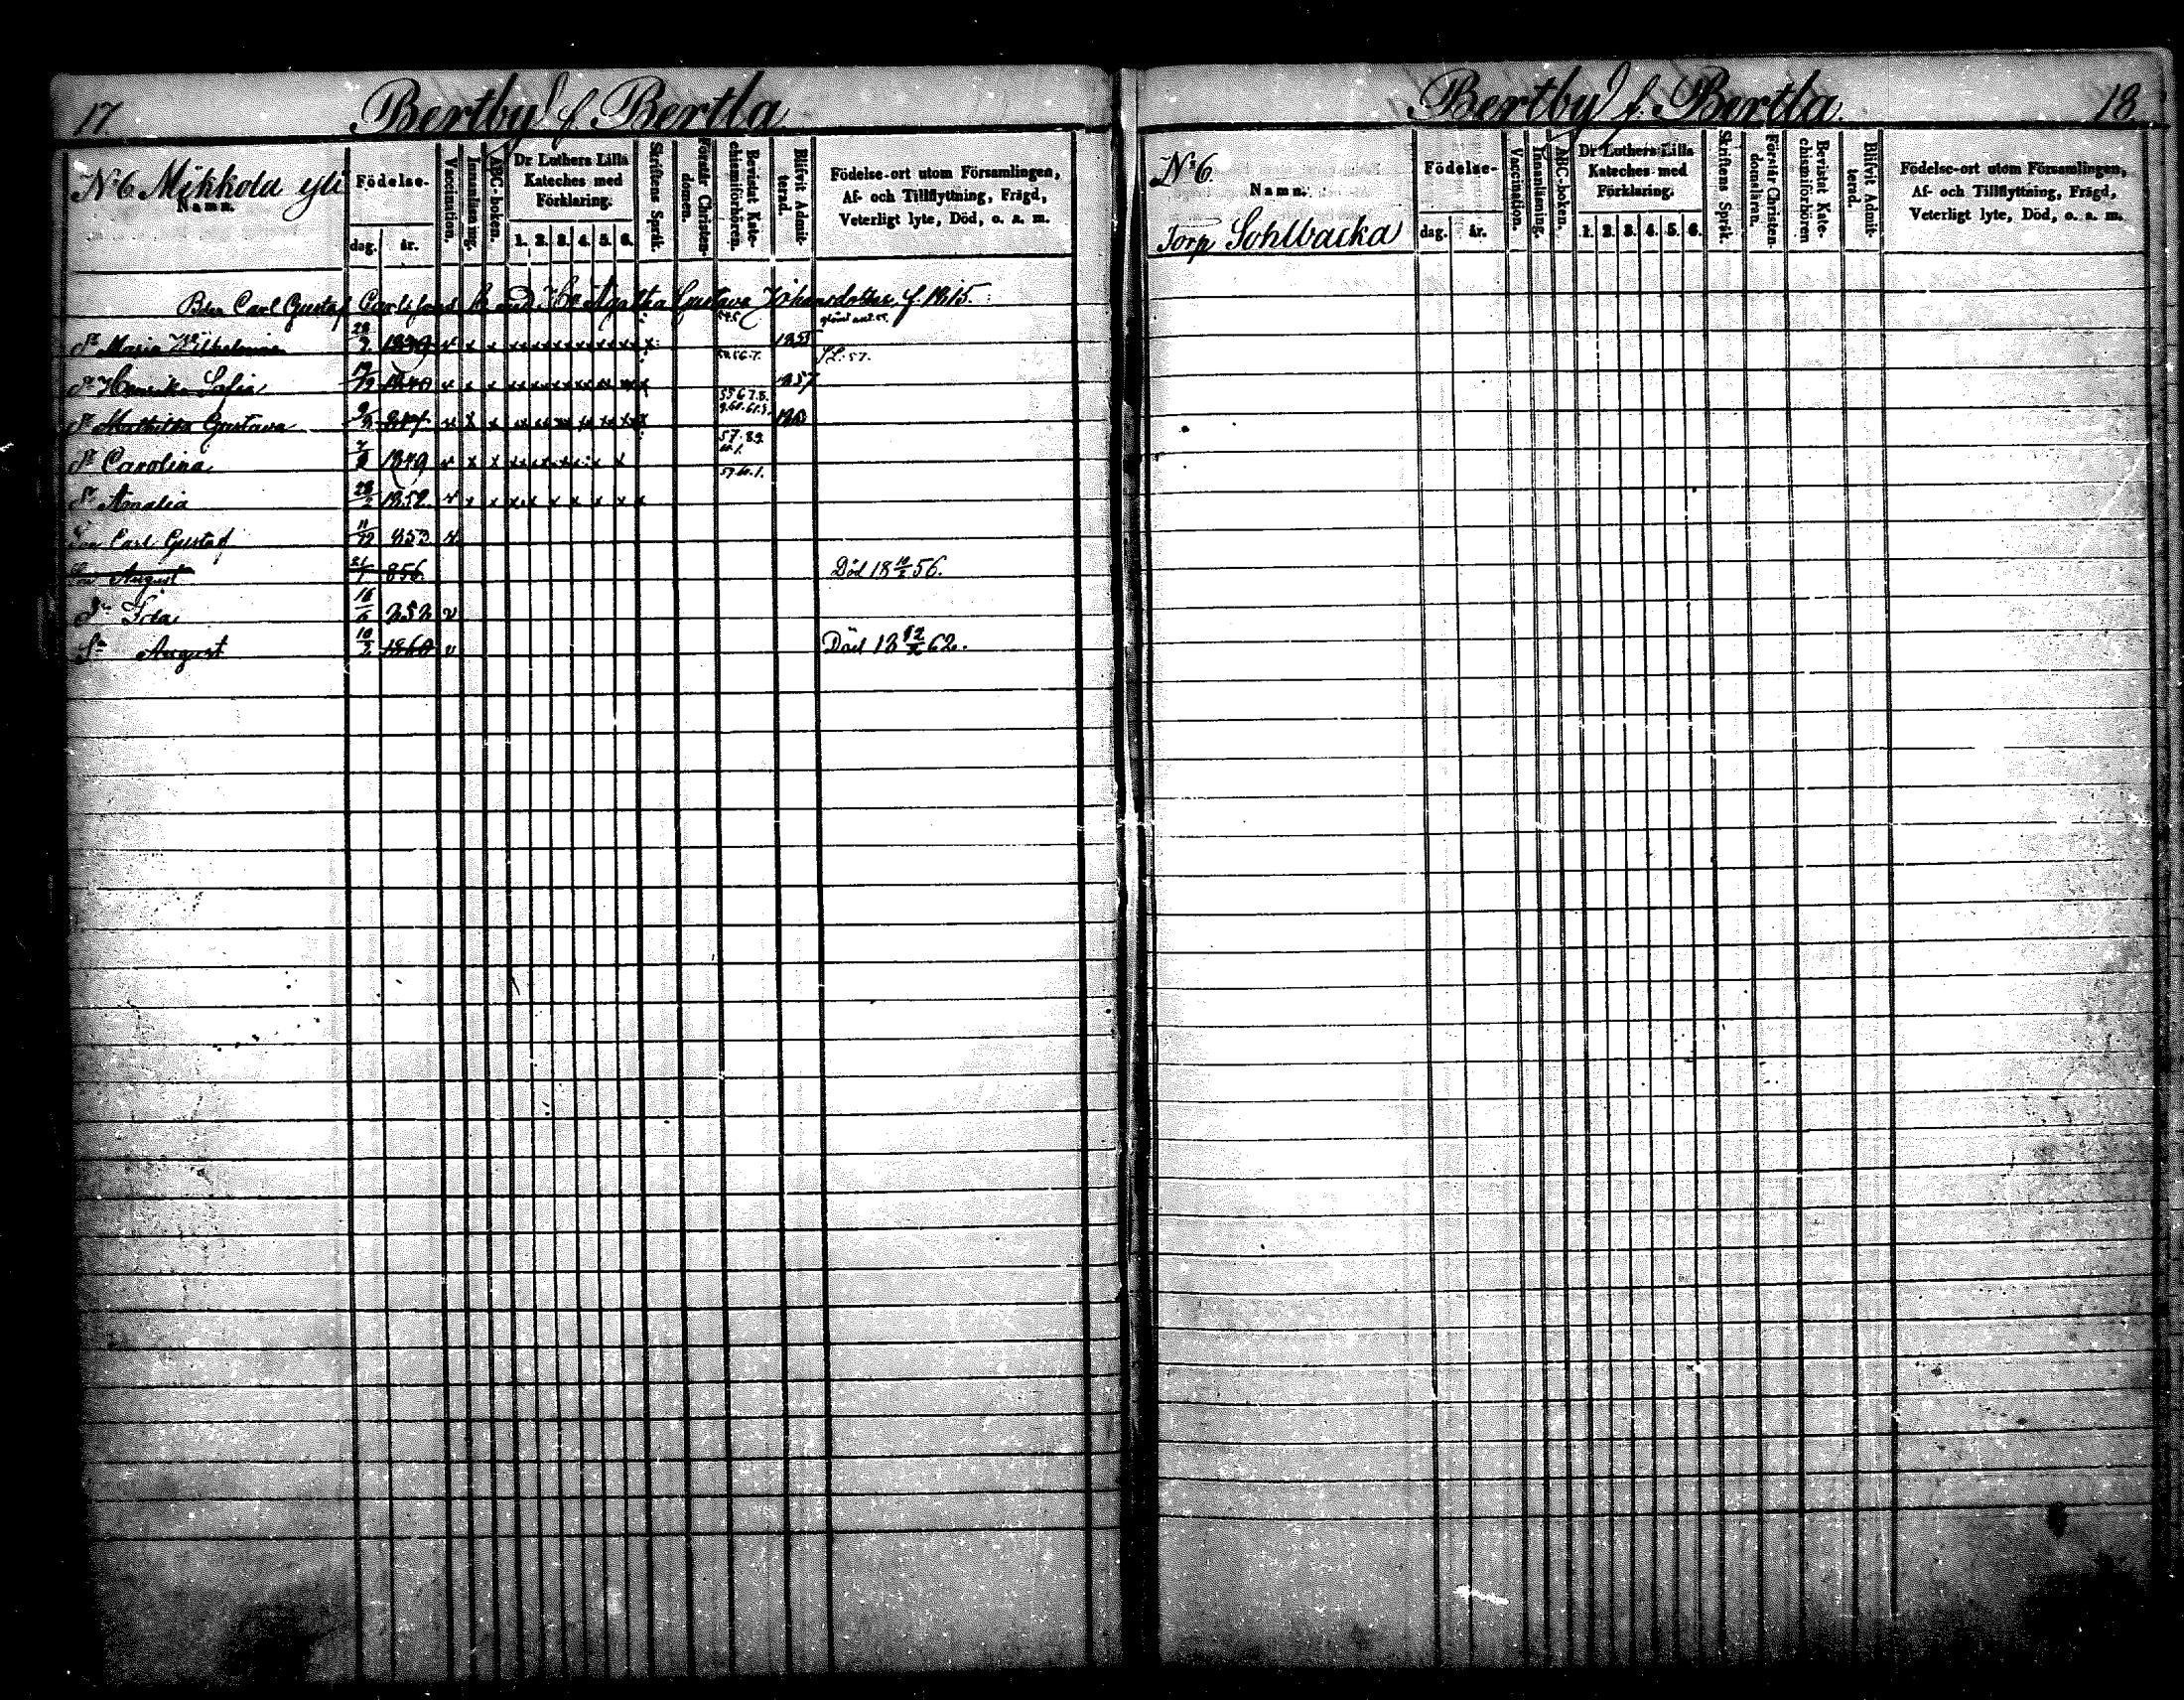 17 Bertby f. Bertla
N:6 Mikkola yli
Namn.
Födelse-
dag. år.
Vaccination.
Innanläsning.
ABC-boken.
Dr Luthers Lilla Kateches med Förklaring.
1. 2. 3. 4. 5. 6.
Skriftens Språk.
Förstår Christen-domen.
Bevistat Kate-chismiförhören.
Blifvit Admit-terad.
Födelse-ort utom Församlingen,
Af- och Tillflyttning, Frägd,
Veterligt lyte, Död, o. a. m.
Carl Gustaf Agatha Gustava Johansdotter f. 1815.
Dr Maria Wilhelmina 1839 v x x x x x x x x x 1855
Dr Henrika Sofia 1840 v x x x x x x x x x 1857 57.
Dr Mathilda Gustava 847 v x x x x x x x x x
Dr Carolina 1849 v x x x x x x x
Dr Amalia 28/2 1852 v x x x x x x x x x
Son Carl Gustaf 11/12 853 v
Son August 856. Död 18 56.
Dr Ida 16/6 v
Sn August 10/2 1860 v Död 18 62.
Bertby f. Bertla. 18.
N:6.
Namn.
Torp Sohlbacka
Födelse-
dag. år.
Vaccination.
Innanläsning.
ABC-boken.
Dr Luthers Lilla Kateches med Förklaring.
1. 2. 3. 4. 5. 6.
Skriftens Språk.
Förstår Christen-domsläran.
Bevistat Kate-chismiförhören
Blifvit Admit-terad.
Födelse-ort utom Församlingen,
Af- och Tillflyttning, Frägd,
Veterligt lyte, Död, o. a. m.